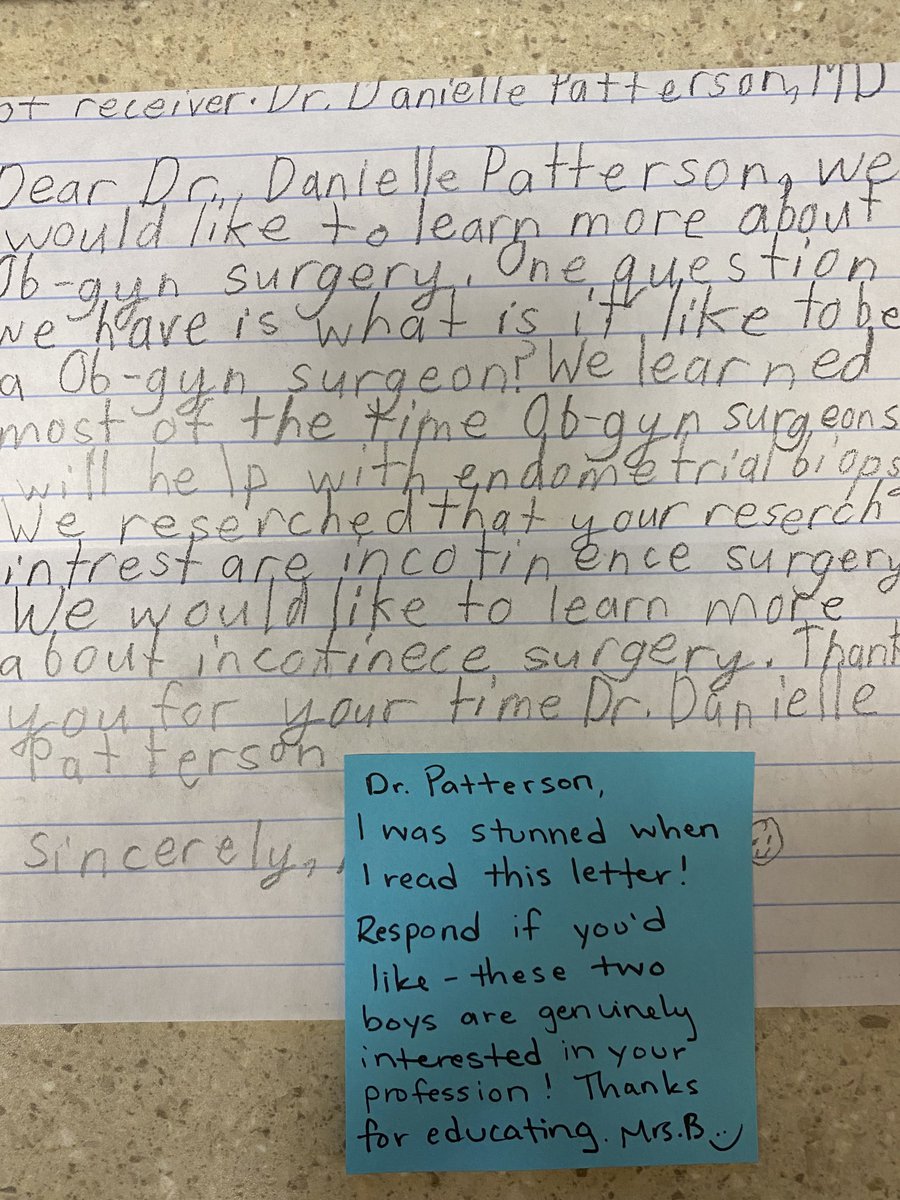 of receiver. Dr. Danielle Patterson, MD
Dear Dr., Danielle Patterson, we
would like to learn more about
Ob-gyn surgery. One question
we have is what is it like to be
a Ob-gyn surgeon? We learned
most of the time Ob-gyn surgeons
will help with endometrial biops
We reserched that your reserch
intrest are incotinence surgery
We would like to learn more
about incotinece surgery. Thank
you for your time Dr. Danielle
Patterson
Sincerely,
Dr. Patterson,
I was stunned when
I read this letter!
Respond if you'd
like - these two
boys are genuinely
interested in your
profession! Thanks
for educating. Mrs. B